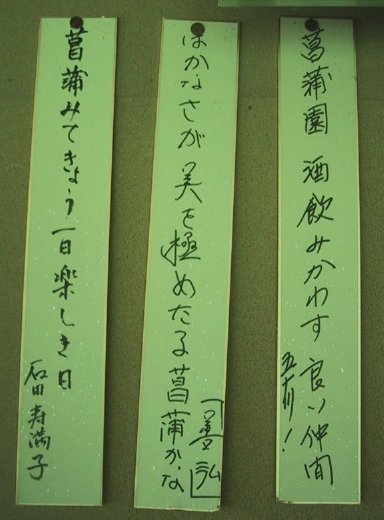 菖蒲園 酒飲みかわす 良い仲間
はかなさが 美を極めたる菖蒲かな
善弘
菖蒲みてきょう一日楽しき日
石田寿満子